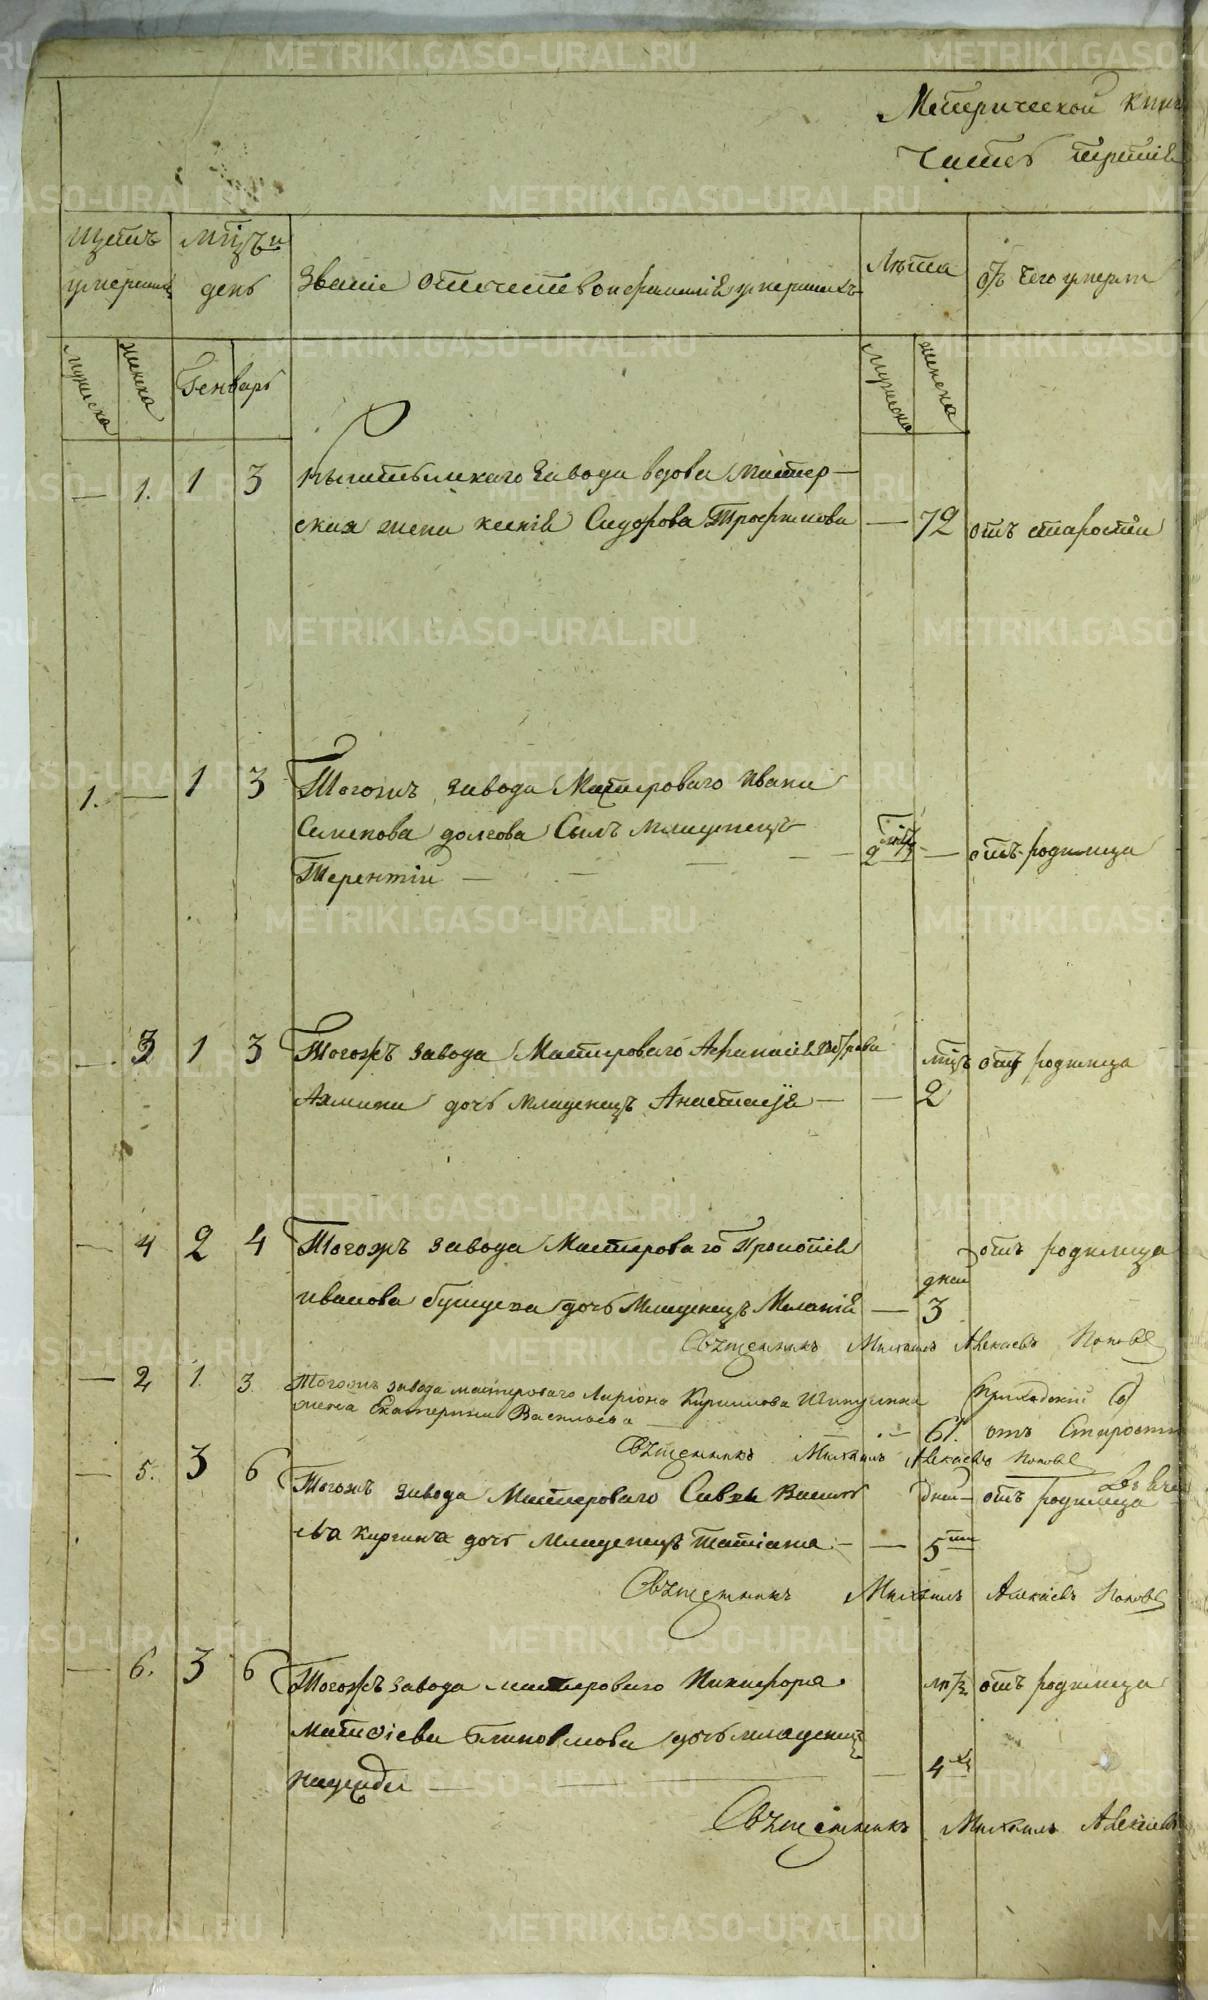 Метрической книг
Часть третія
щетъ умершихъ
мцъ и день
званіе отечество и фамилія умершихъ
лѣта
отъ чего умерли
мужеска
женска
Генварь
мужеска
женска
— 1. 1 3 Кыштымскаго завода вдова мастер-
ская жена ксенія Сидорова Трофимова — 72 отъ старости
1. — 1 3 Тогожъ завода Мастероваго Ивана
Семенова долгова Сынъ младенецъ
Терентій — 2 — отъ родимца
— 3 1 3 Тогожъ завода Мастероваго Афанасія
дочь младенецъ Анастасія — — мцъ 2 отъ родимца
— 4 2 4 Тогожъ завода Мастероваго Прокопія
иванова бушуева дочь младенецъ Меланія — дней 3 отъ родимца
Священникъ Михаилъ Алексіевъ Поповъ
— 2 1. 3. Тогожъ завода мастероваго Ларіона Кирилова Шипулина
жена Екатерина Васильева — 61. отъ Старости
Священникъ Михаилъ Алексіевъ Поповъ
— 5. 3 6 Тогожъ завода Мастероваго Савы Василь
ева киргина дочь младенецъ татіана — — дней 5 отъ родимца
Священникъ Михаилъ Алексіевъ Поповъ
— 6. 3 6 Тогожъ завода мастероваго Никифора
матфіева блиновскова дочь младенецъ
надежда — — 4 отъ родимца
Священникъ Михаилъ Алексіевъ
METRIKI.GASO-URAL.RU